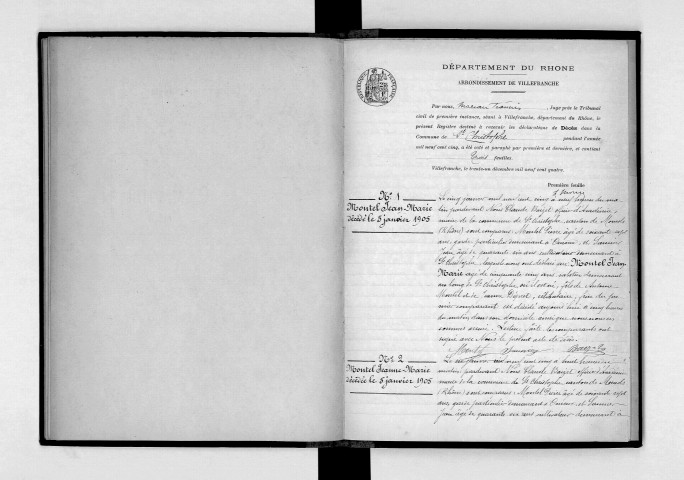 DÉPARTEMENT DU RHONE
ARRONDISSEMENT DE VILLEFRANCHE
Par nous, Francis, Juge près le Tribunal
civil de première instance, séant à Villefranche, département du Rhône, le
présent Registre destiné à recevoir les déclarations de Décès dans la
Commune de St Christophe pendant l'année
mil neuf cent cinq, a été coté et paraphé par première et dernière, et contient
trois feuilles.
Villefranche, le trente-un décembre mil neuf cent quatre.
Première feuille
N° 1
Montel Jean-Marie
décédé le 5 janvier 1905
Le cinq janvier mil neuf cent cinq à neuf heures du ma-
tin pardevant Nous Claude officier d'Académie
maire de la commune de St Christophe, canton de Monsols
(Rhône) sont comparus: Montel Pierre âgé de soixante sept
ans, garde particulier demeurant à et
Jean âgé de quarante six ans cultivateur demeurant à
St Christophe, lesquels nous ont déclaré que Montel Jean-
Marie âgé de cinquante cinq ans, demeurant
au bourg de St Christophe, où il est né, fils de Antoine
Montel et de Jeanne célibataire,
comparant est décédé aujourd'hui à cinq heures
du matin dans son domicile ainsi que nous nous en
sommes assuré. Lecture faite les comparants ont
signé avec Nous le présent acte de décès.
Montel
N° 2
Montel Jeanne-Marie
décédée le 5 janvier 1905
Le janvier mil neuf cent cinq à huit heures
matin pardevant Nous Claude officier d'académie
maire de la commune de St Christophe, canton de Monsols
(Rhône) sont comparus: Montel Pierre âgé de soixante sept
ans, garde particulier demeurant à et
Jean âgé de quarante six ans cultivateur demeurant à